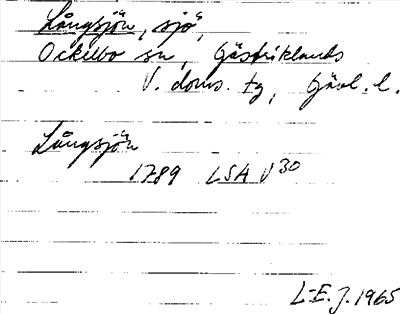 Långsjön, sjö,
Ockelbo sn, Gästriklands
V. doms. tg, Gävl. l.
Långsjön
1789 LSA V30
L-E. J. 1965